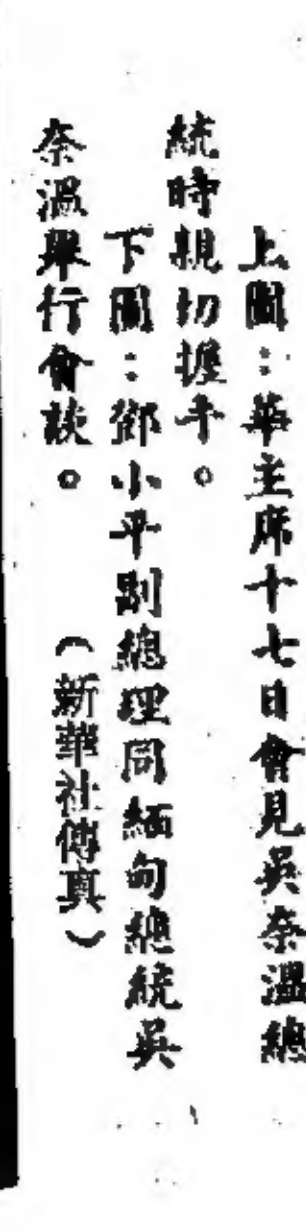 上圖：華主席十七日會見吳奈溫總
統時親切握手。
下圖：鄧小平副總理同緬甸總統吳
奈溫舉行會談。　（新華社傳真）